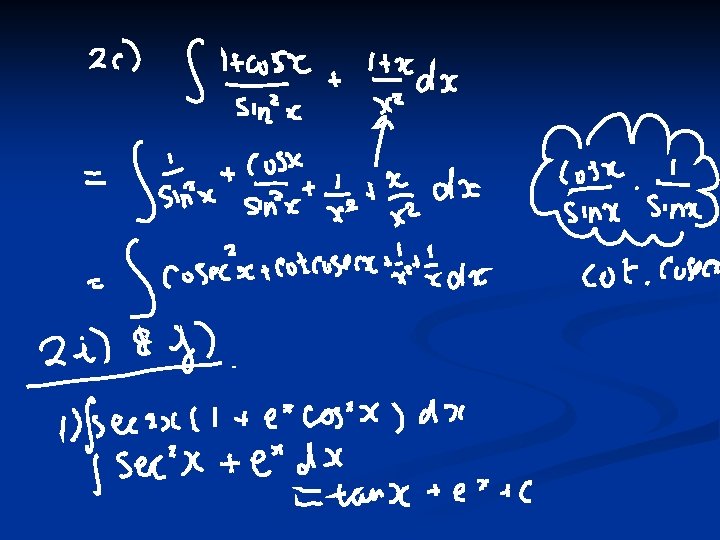 2c) ∫ (1+cosx)/(sin²x) + (1+x)/(x²) dx
= ∫ 1/(sin²x) + (cosx)/(sin²x) + 1/(x²) + x/(x²) dx
(cosx)/(sinx) · 1/(sinx)
= ∫ cosec²x + cotcosecx + 1/x² + 1/x dx
cot. cosecx
2i) & j).
1) ∫sec²x(1 + eˣ cos²x) dx
∫ sec²x + eˣ dx
= tanx + eˣ + c